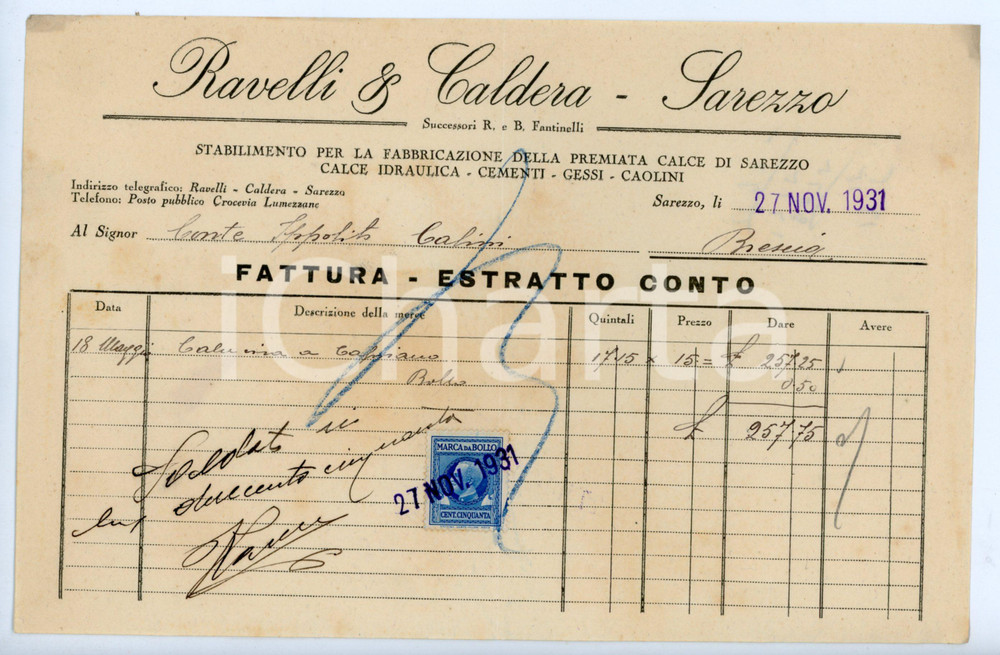 Ravelli & Caldera - Sarezzo
Successori R. e B. Fantinelli
STABILIMENTO PER LA FABBRICAZIONE DELLA PREMIATA CALCE DI SAREZZO
CALCE IDRAULICA - CEMENTI - GESSI - CAOLINI
Indirizzo telegrafico: Ravelli - Caldera - Sarezzo
Telefono: Posto pubblico Crocevia Lumezzane
Sarezzo, li 27 NOV. 1931
Al Signor Conte Ippolito Calini Brescia
FATTURA - ESTRATTO CONTO
iCharta
Data Descrizione della merce Quintali Prezzo Dare Avere
18 Maggio a 17.15 x 15 = £ 257.25
Bollo 0.50
£ 257.75
Saldato in
duecento cinquanta
MARCA DA BOLLO
27 NOV. 1931
CENT. CINQUANTA